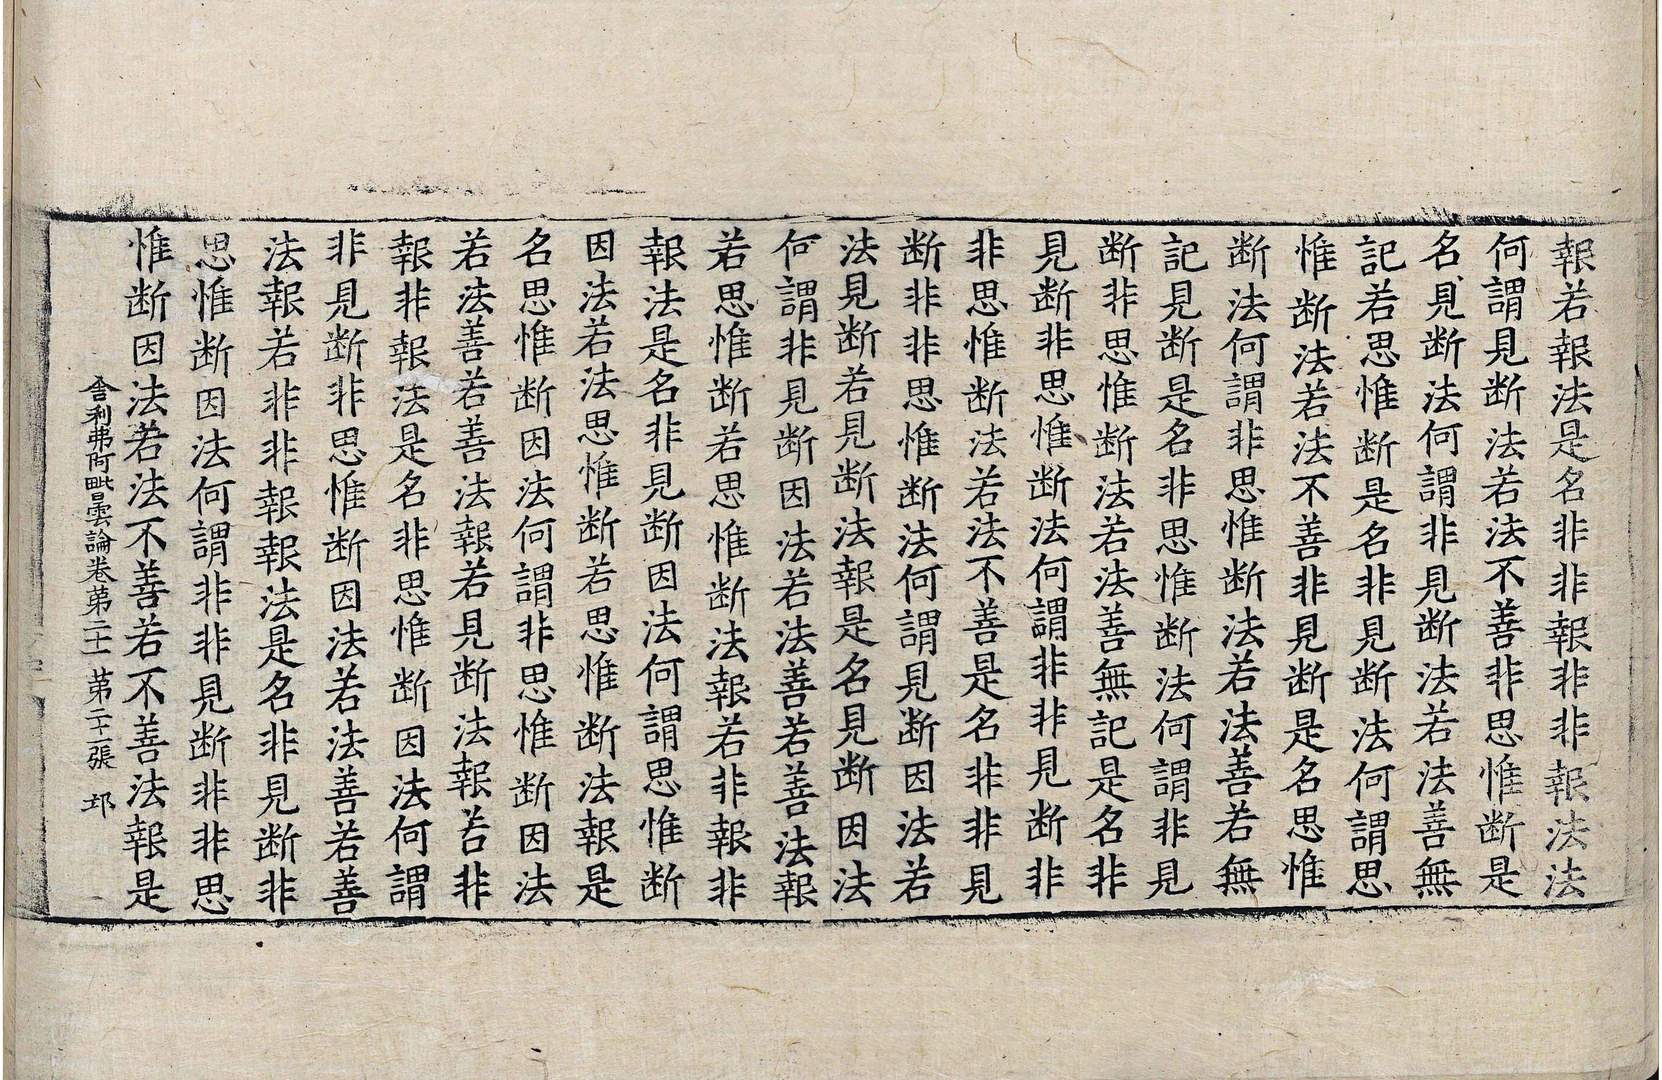 報若報法是名非非報非非報法法
何謂見断法若法不善非思惟断是
名見断法何謂非見断法若法善無
記若思惟断是名非見断法何謂思
惟断法若法不善非見断是名思惟
断法何謂非思惟断法若法善若無
記見断是名非思惟断法何謂非見
断非思惟断法若法善無記是名非
見断非思惟断法何謂非非見断非
非思惟断法若法不善是名非非見
断非非思惟断法何謂見断因法若
法見断若見断法報是名見断因法
何謂非見断因法若法善若善法報
若思惟断若思惟断法報若非報非
報法是名非見断因法何謂思惟断
因法若法思惟断若思惟断法報是
名思惟断因法何謂非思惟断因法
若法善若善法報若見断法報若非
報非報法是名非思惟断因法何謂
非見断非思惟断因法若法善若善
法報若非非報報法是名非見断非
思惟断因法何謂非非見断非非思
惟断因法若法不善若不善法報是
舍利弗阿毗曇論卷苐二十一 苐二十一張 邛